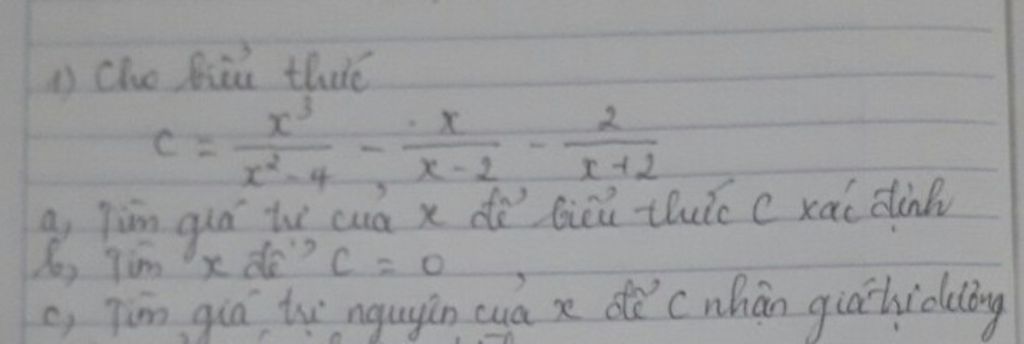 1) Cho biểu thức
C = x³/(x²-4) - x/(x-2) - 2/(x+2)
a, Tìm giá trị của x để biểu thức C xác định
b, Tìm x để C = 0
c, Tìm giá trị nguyên của x để C nhận giá trị dương